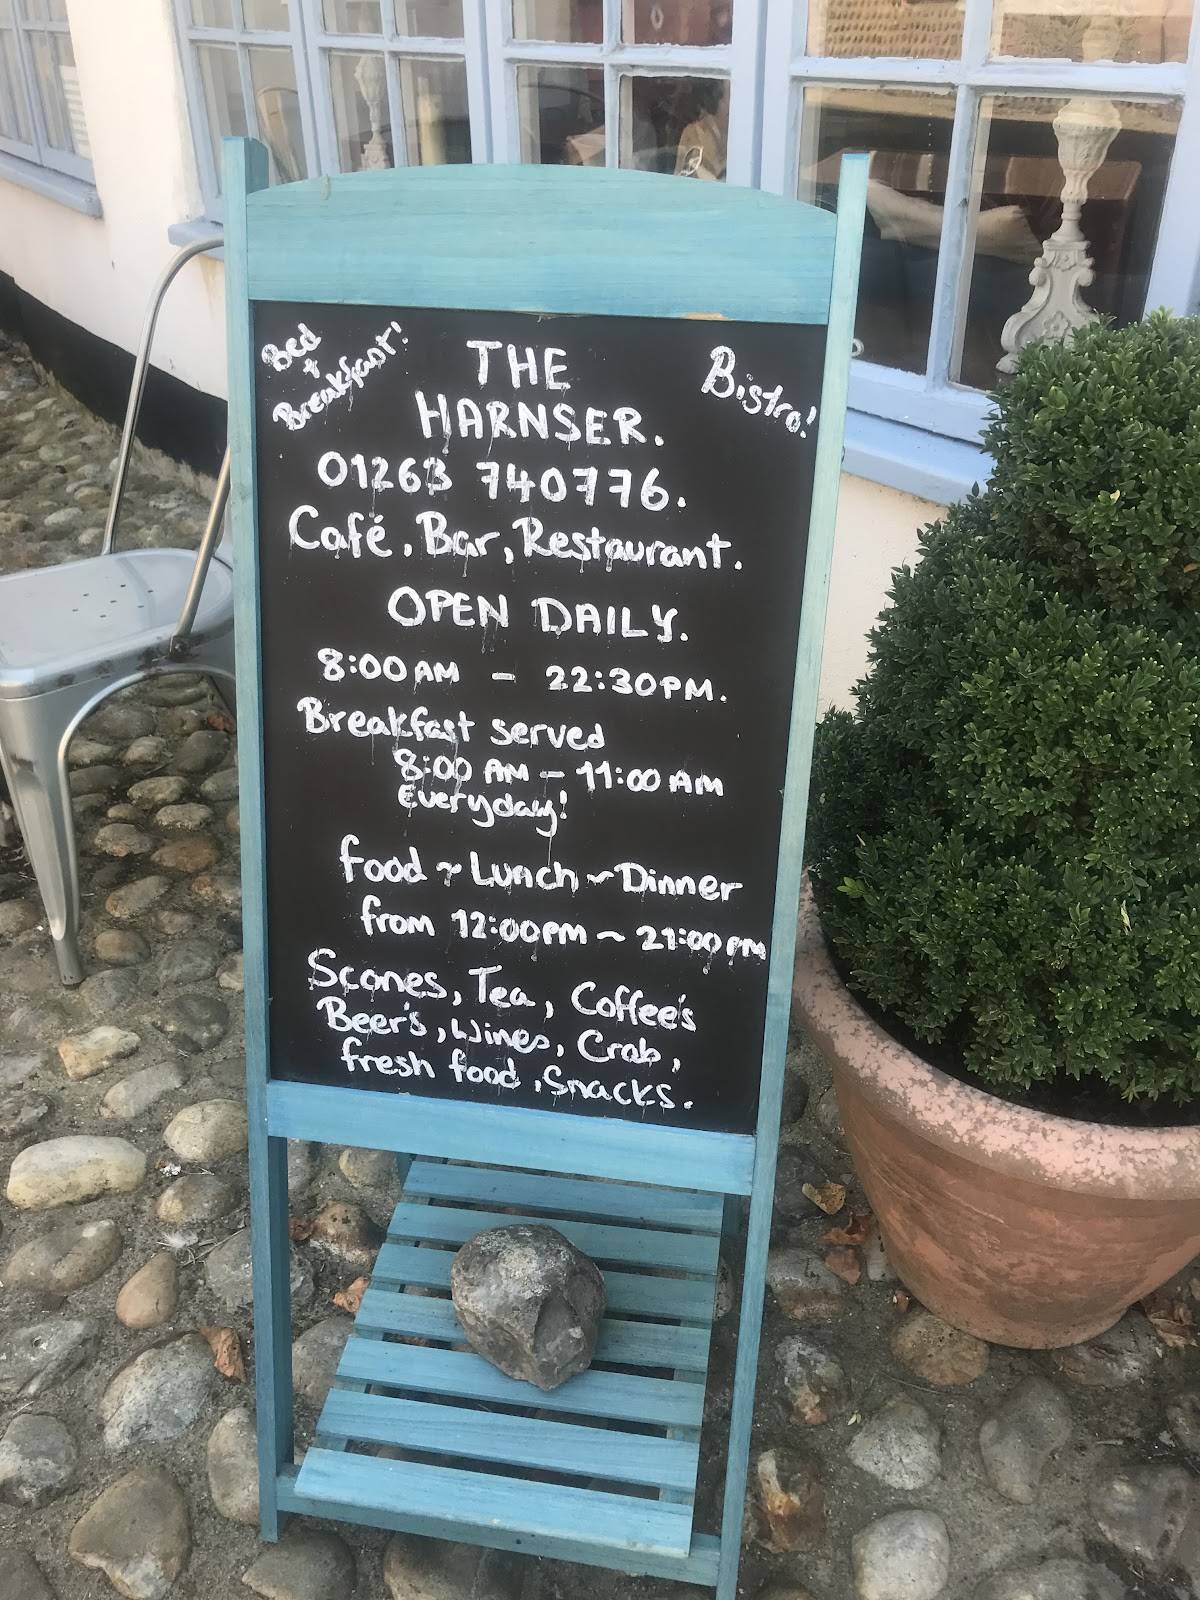 Bed
+
Breakfast!
THE
HARNSER.
Bistro!
01263 740776.
Café, Bar, Restaurant.
OPEN DAILY.
8:00 AM - 22:30PM.
Breakfast served
8:00 AM - 11:00 AM
Everyday!
food ~ Lunch ~ Dinner
from 12:00PM ~ 21:00PM
Scones, Tea, Coffee's
Beer's, Wines, Crab,
fresh food, Snacks.